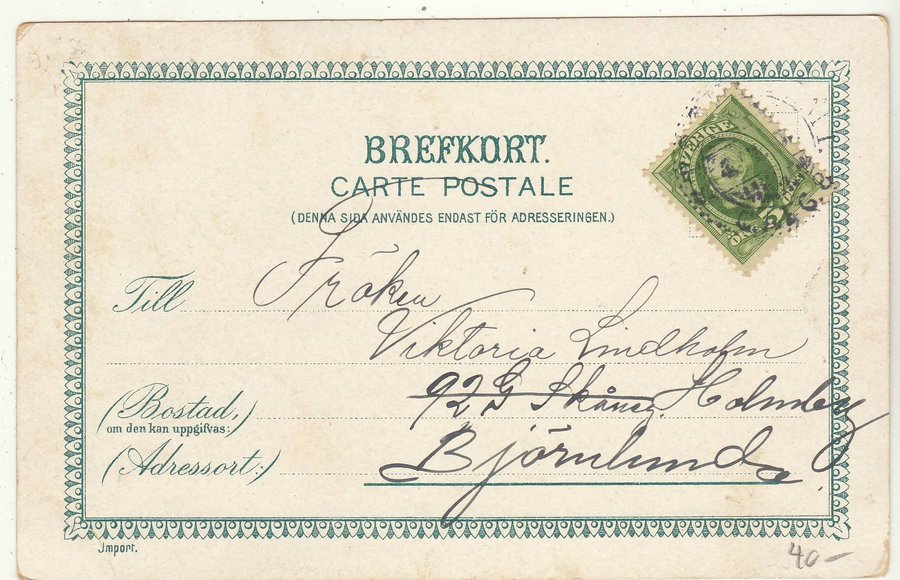 BREFKORT.
CARTE POSTALE
(DENNA SIDA ANVÄNDES ENDAST FÖR ADRESSERINGEN.)
SVERIGE
Till Fröken
Viktoria Lindholm
(Bostad,) 92 G Skånsg. Holmby
om den kan uppgifvas:)
(Adressort:) Björnlunda
Import.
40-